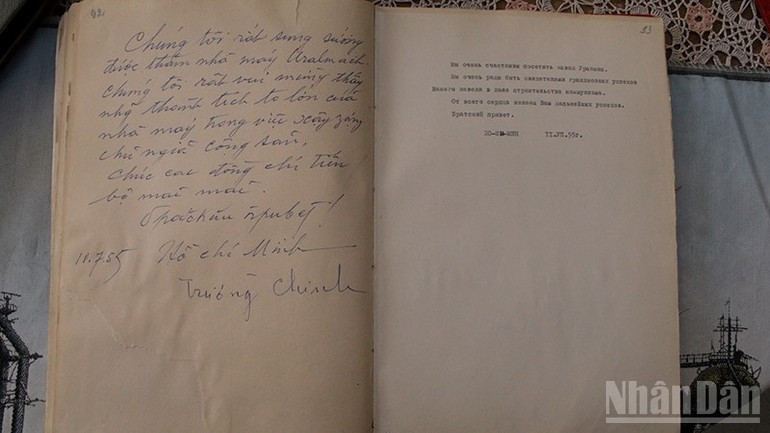 92.
Chúng tôi rất sung sướng
được thăm nhà máy Uralmach.
Chúng tôi rất vui mừng thấy
nhg thành tích to lớn của
nhà máy trong việc xây zựng
chủ nghĩa cộng sản.
Chúc các đồng chí tiến
bộ mãi mãi.
Братский привет!
10.7.55 Hồ Chí Minh
Trường Chinh
93
Мы очень счастливы посетить завод Уралмаш.
Мы очень рады быть свидетелями грандиозных успехов
Вашего завода в деле строительства коммунизма.
От всего сердца желаем Вам дальнейших успехов.
Братский привет.
ХО-ШИ-МИН II.УП.55г.
NhânDân